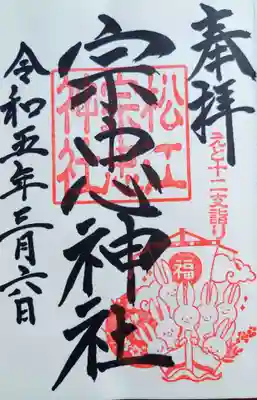 奉拝
えと十二支詣り
福
宗忠神社
松江
宗忠
神社
令和五年三月六日